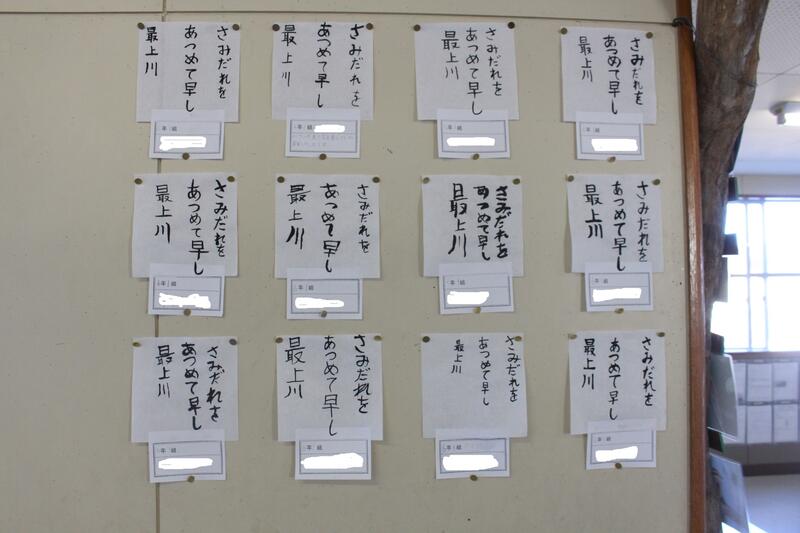 さみだれを
あつめて早し
最上川
年 組
さみだれを
あつめて早し
最上川
年 組
さみだれを
あつめて早し
最上川
年 組
さみだれを
あつめて早し
最上川
年 組
さみだれを
あつめて早し
最上川
年 組
さみだれを
あつめて早し
最上川
年 組
さみだれを
あつめて早し
最上川
年 組
さみだれを
あつめて早し
最上川
年 組
さみだれを
あつめて早し
最上川
年 組
さみだれを
あつめて早し
最上川
年 組
さみだれを
あつめて早し
最上川
年 組
さみだれを
あつめて早し
最上川
年 組